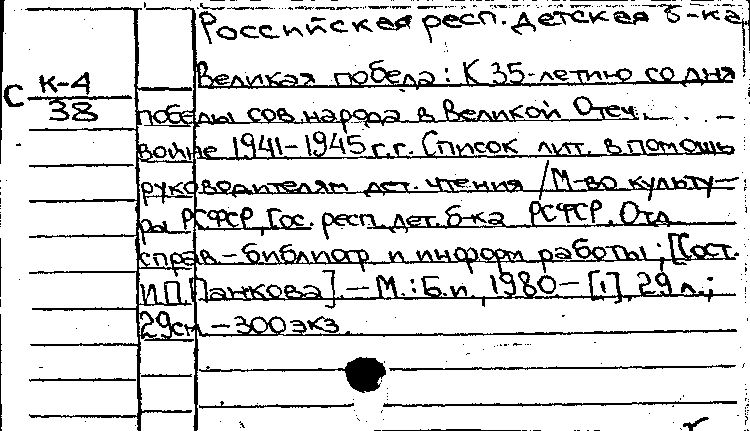 Российская респ. детская б-ка
Великая победа: К 35-летию со дня
С К-4
38
победы сов. народа в Великой Отеч.
войне 1941-1945 г.г. Список лит. в помощь
руководителям дет. чтения /М-во культу-
ры РСФСР, Гос. респ. дет. б-ка РСФСР. Отд.
справ.-библиогр и информ работы; [Сост.
И.П. Панкова]. — М.: Б.и., 1980 — [1], 29 л.;
29 см — 300 экз.